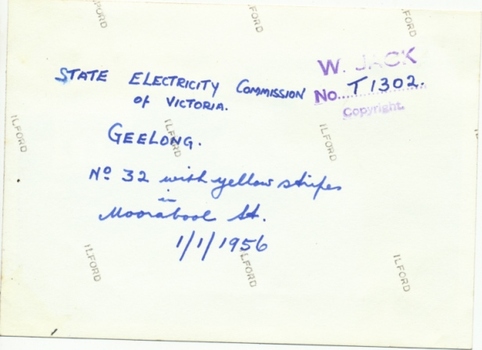 ILFORD
ILFORD
ILFORD
W. JACK
STATE ELECTRICITY COMMISSION
No. T1302.
OF VICTORIA.
Copyright.
ILFORD
ILFORD
ILFORD
GEELONG.
Nº 32 with yellow stripes
in
Moorabool St.
1/1/1956
ILFORD
ILFORD
ILFORD